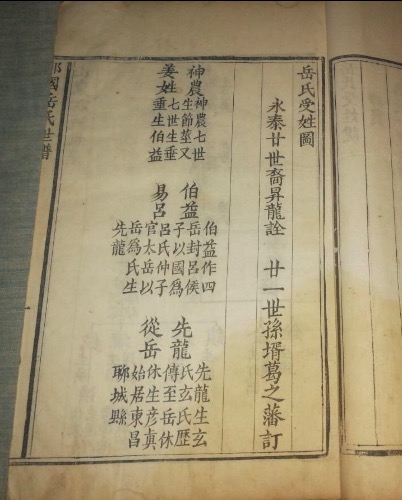 岳氏受姓圖
永泰廿世裔昇龍詮 廿一世孫壻葛之藩訂
神農
姜姓
神農七世
生節莖又
七世生垂
垂生伯益
伯益
易呂
伯益作四
岳封呂侯
子以國爲
呂氏仲子
官太岳以
岳爲氏生
先龍
先龍
從岳
先龍生玄
氏玄氏歷
傳至岳休
休生彦真
始居東昌
聊城縣
國岳氏世譜